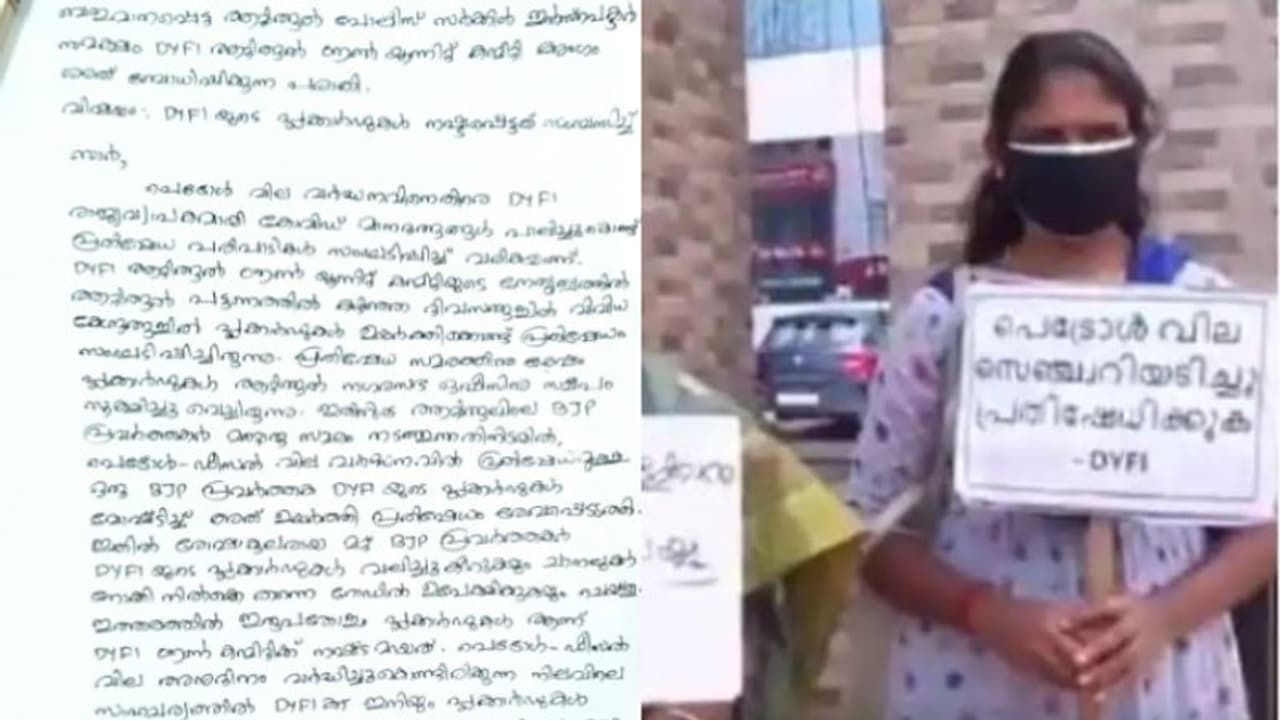 ബഹുമാനപ്പെട്ട ആറ്റിങ്ങൽ പോലീസ് സർക്കിൾ ഇൻസ്പെക്ടർ
സമക്ഷം DYFI ആറ്റിങ്ങൽ ടൗൺ യൂണിറ്റ് കമ്മിറ്റി അംഗം
ബോധിപ്പിക്കുന്ന പരാതി.
വിഷയം: DYFI യുടെ പ്ലക്കാർഡുകൾ നഷ്ടപ്പെട്ടത് സംബന്ധിച്ച്
സാർ,
പെട്രോൾ വില വർദ്ധനവിനെതിരെ DYFI
രാജ്യവ്യാപകമായി കോവിഡ് മാനദണ്ഡങ്ങൾ പാലിച്ചുകൊണ്ട്
പ്രതിഷേധ പരിപാടികൾ സംഘടിപ്പിച്ച് വരികയാണ്.
DYFI ആറ്റിങ്ങൽ ടൗൺ യൂണിറ്റ് കമ്മിറ്റിയുടെ നേതൃത്വത്തിൽ
ആറ്റിങ്ങൽ പട്ടണത്തിൽ കഴിഞ്ഞ ദിവസങ്ങളിൽ വിവിധ
കേന്ദ്രങ്ങളിൽ പ്ലക്കാർഡുകൾ ഉയർത്തിക്കൊണ്ട് പ്രതിഷേധം
സംഘടിപ്പിച്ചിരുന്നു. പ്രതിഷേധ സമരത്തിനു ശേഷം
പ്ലക്കാർഡുകൾ ആറ്റിങ്ങൽ നഗരസഭ ഓഫീസിനു സമീപം
സൂക്ഷിച്ചു വെച്ചിരുന്നു. ആറ്റിങ്ങലിലെ BJP
പ്രവർത്തകർ മറ്റൊരു സമരം നടത്തുന്നതിനിടയിൽ,
പെട്രോൾ-ഡീസൽ വില വർദ്ധനവിൽ
ഒരു BJP പ്രവർത്തക DYFI യുടെ പ്ലക്കാർഡുകൾ
മോഷ്ടിച്ച് അത് ഉയർത്തി പ്രതിഷേധം രേഖപ്പെടുത്തി.
ഇതിൽ മറ്റ് BJP പ്രവർത്തകർ
DYFI യുടെ പ്ലക്കാർഡുകൾ വലിച്ചുകീറുകയും ചാനലുകൾ
നോക്കി നിൽക്കെ തന്നെ റോഡിൽ ഉപേക്ഷിക്കുകയും ചെയ്തു.
ഇത്തരത്തിൽ ഇരുപത്തഞ്ചോളം പ്ലക്കാർഡുകൾ ആണ്
DYFI ടൗൺ കമ്മിറ്റിക്ക് നഷ്ടമായത്. പെട്രോൾ-ഡീസൽ
വില അനുദിനം വർദ്ധിച്ചുകൊണ്ടിരിക്കുന്ന നിലവിലെ
സാഹചര്യത്തിൽ DYFI ക്ക് ഇനിയും പ്ലക്കാർഡുകൾ
പെട്രോൾ വില
സെഞ്ച്വറിയടിച്ചു
പ്രതിഷേധിക്കുക
- DYFI